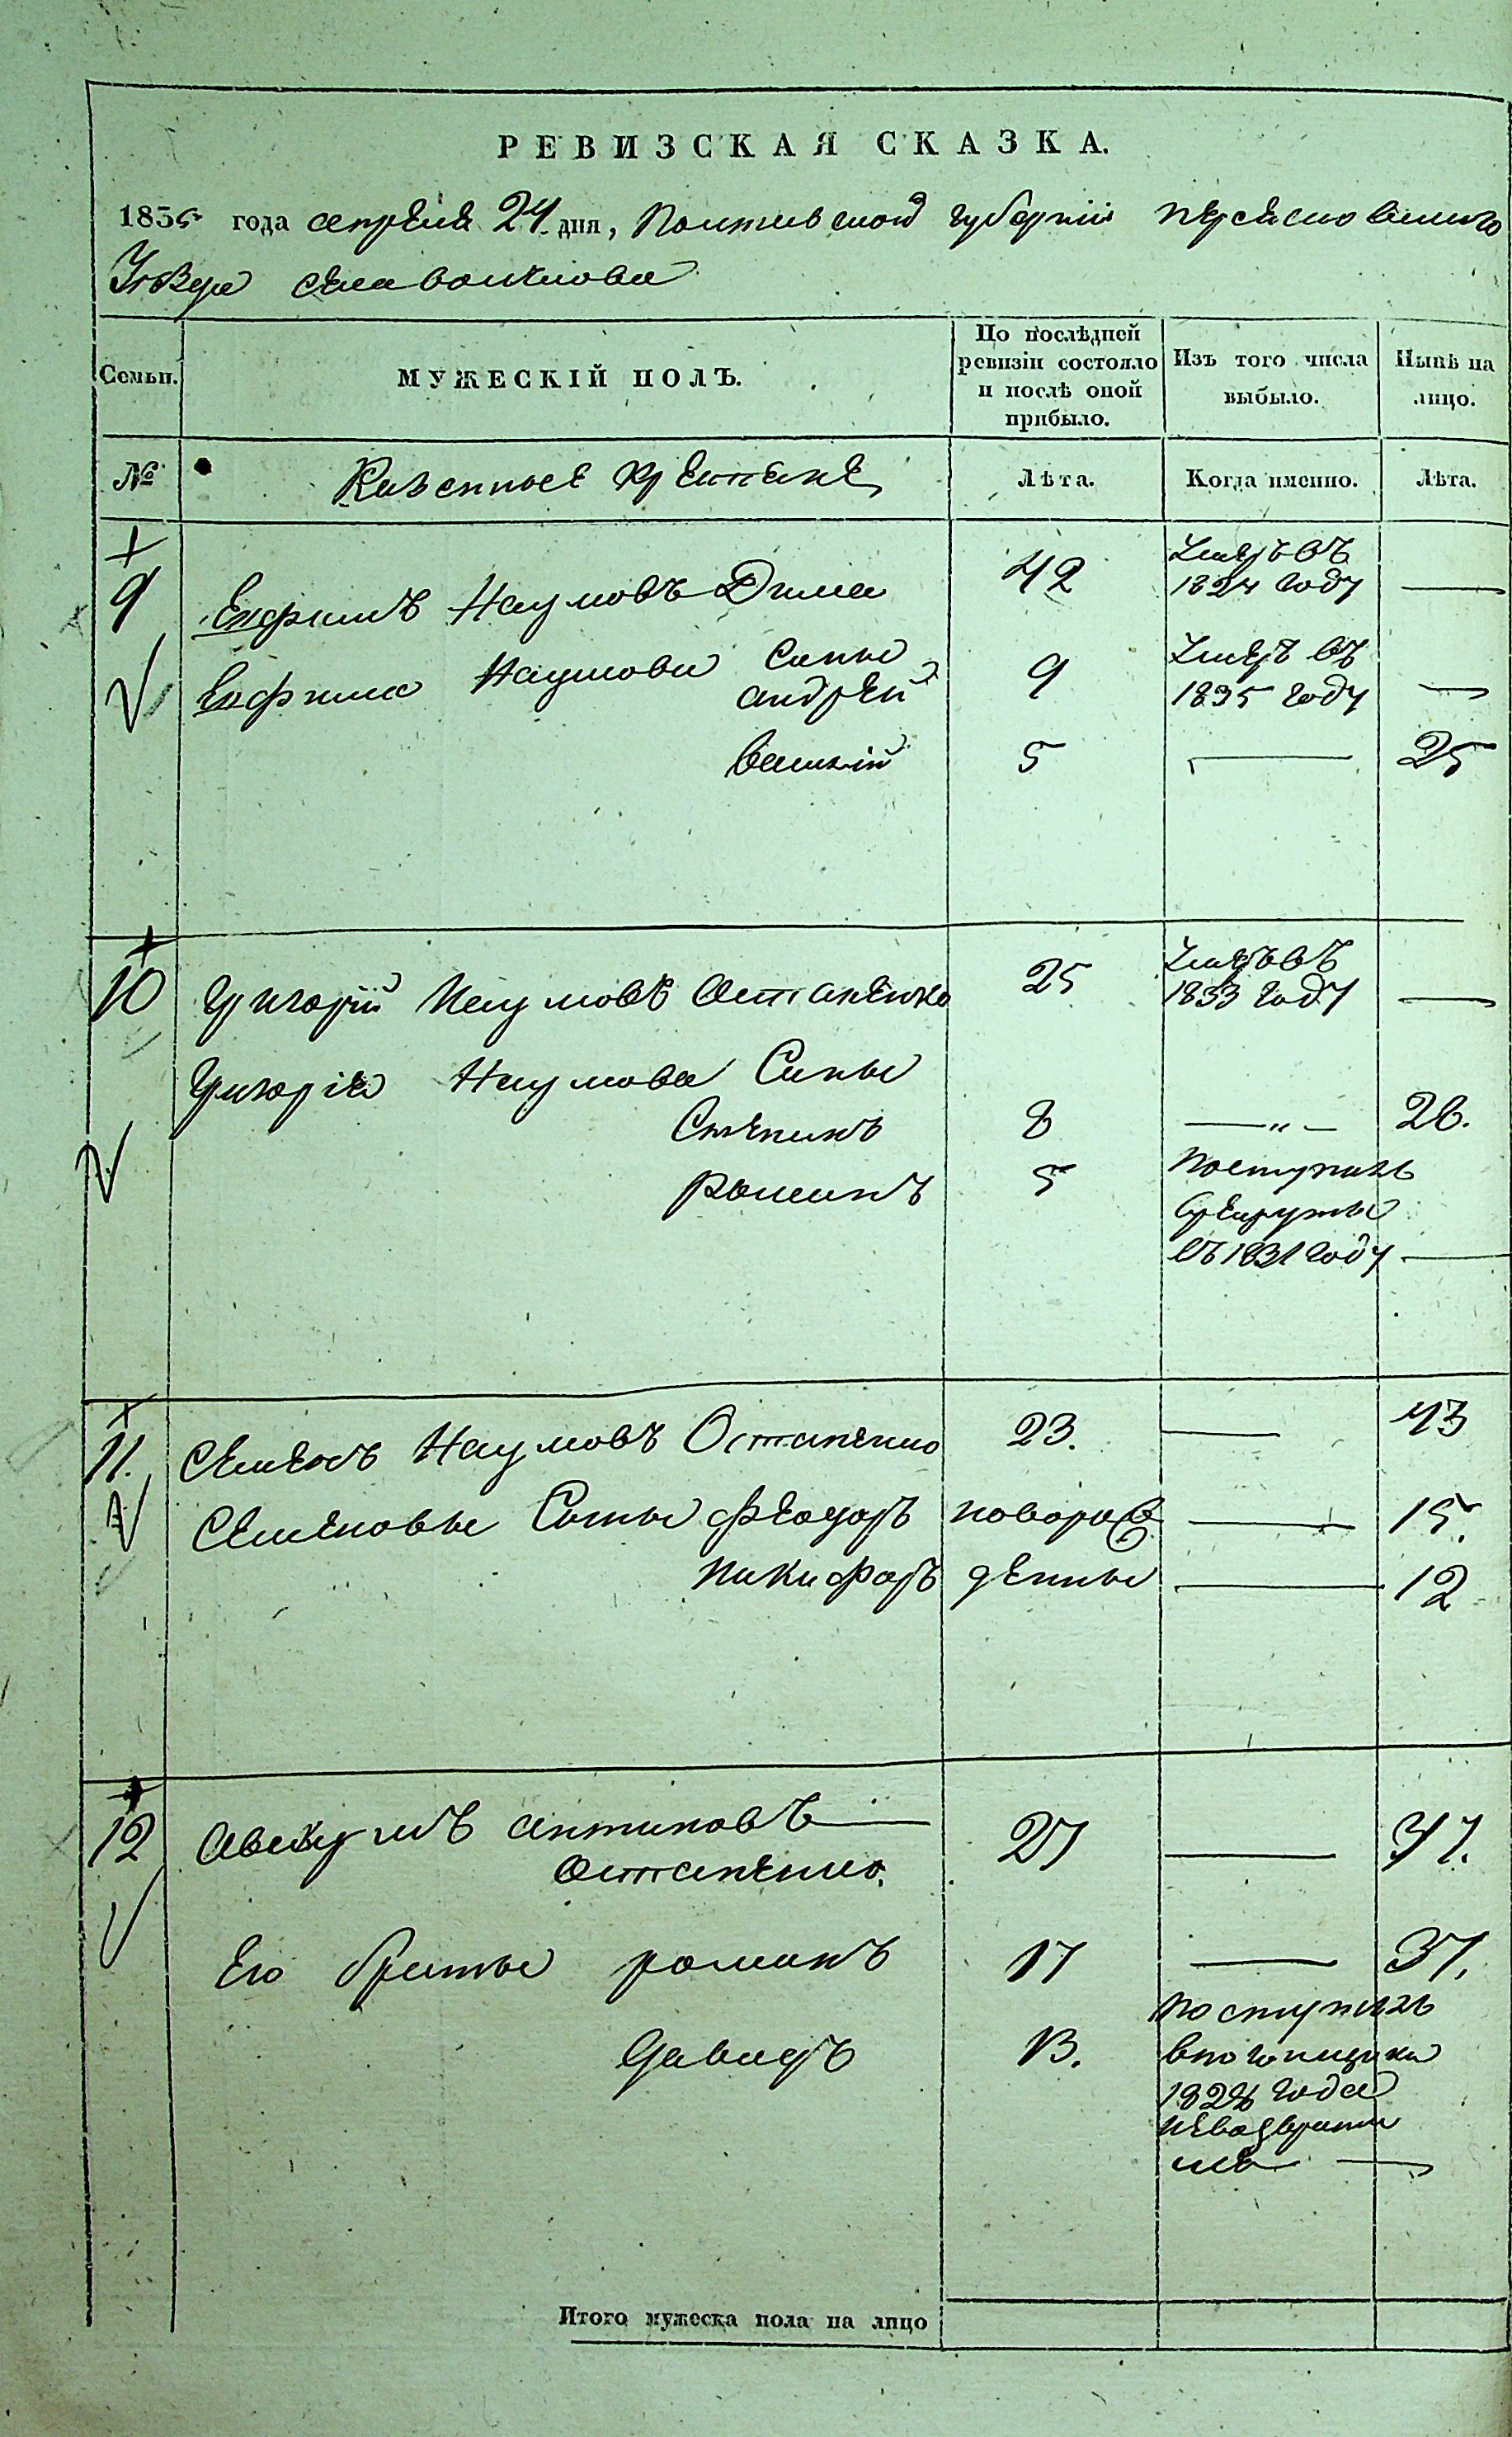 РЕВИЗСКАЯ СКАЗКА.
1835 года апреля 24 дня, Полтавской губернии переяславскаго
Уезда села
Семьи. МУЖЕСКІЙ ПОЛЪ. По послѣдней ревизіи состояло и послѣ оной прибыло. Изъ того числа выбыло. Нынѣ на лицо.
№ Казенные крестяне Лѣта. Когда именно. Лѣта.
9 Ефримъ Наумовъ Дима 42 Умеръ въ 1824 году —
Ефрима Наумова Сыны
андрей 9 Умеръ въ 1835 году —
василій 5 — 25
10 Григорій Наумовъ Остапенко 25 Умеръ въ 1833 году —
Григорія Наумова Сыны
Степанъ 8 —〃— 26.
романъ 5 поступилъ
в рекруты
въ 1831 году —
11. Семенъ Наумовъ Остапенко 23. — 43
Семеновы Сыны Феодоръ новорож — 15.
никифоръ денны — 12
12 авакумъ антиповъ —
Остапенко. 27 — 47.
Его братья романъ 17 — 37.
давидъ 13. поступилъ
в погонщики
года
невозврати
лся —
Итого мужеска пола на лицо